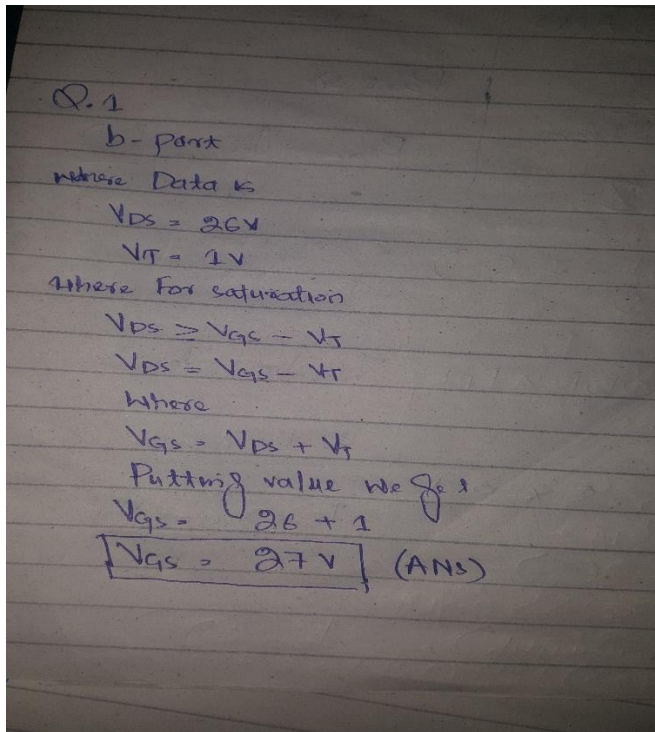 Q.1
b- part
where Data is
VDS = 26V
VT = 1V
Where For saturation
VDS ≥ VGS - VT
VDS = VGS - VT
Where
VGS = VDS + VT
Putting value we get
VGS = 26 + 1
VGS = 27V (ANS)